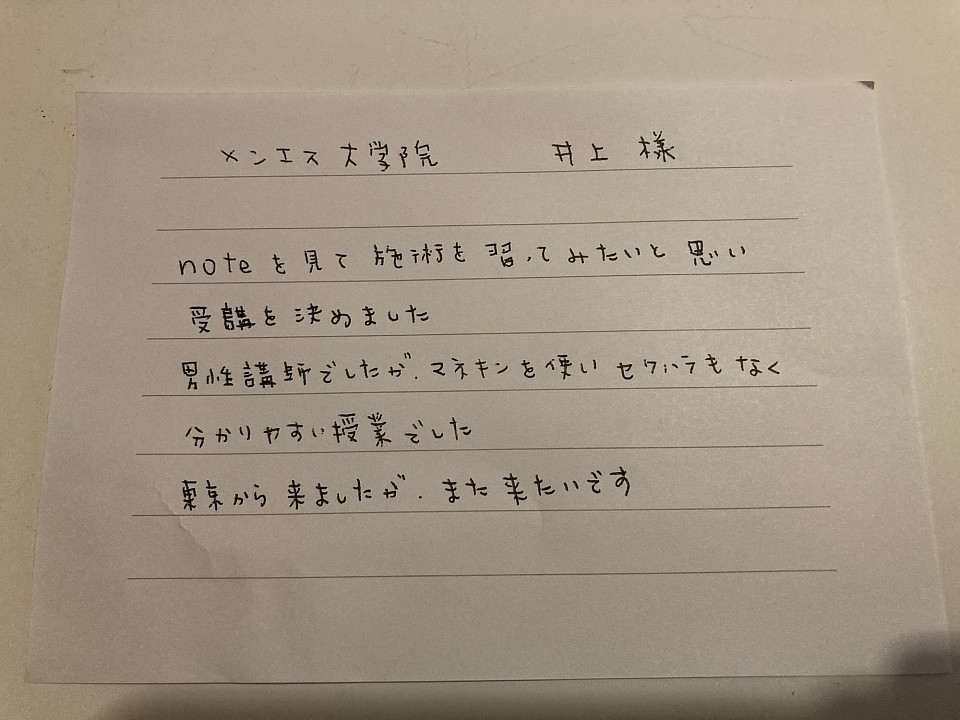 メンエス大学院 井上 様
noteを見て施術を習ってみたいと思い
受講を決めました
男性講師でしたが、マネキンを使いセクハラもなく
分かりやすい授業でした
東京から来ましたが、また来たいです